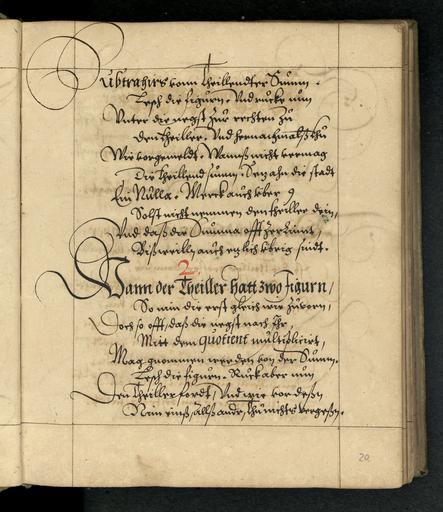 Subtrahirs vonn theillendter Summ.
Lesch die figurn. Und rucke nun
Unter die negst zur rechten zu
Den theiller. Und hernachmalß thu
Wie vorgemeldt. Wanß nicht vermag
Die theillend summ. Sez ahn die stadt
Ein Nulla. Merck auch über 9
Solst nicht nemmen den theiller dein,
Und daß die Summa offt zerrint,
Bißweilln auch etzlich übrig sindt.
2.
Wann der Theiller hatt zwo figurn,
So nim die erst gleich wie zuvorn,
Doch so offt, daß die negst nach ihr,
Mitt dem quotient multiplicirt,
Mag gnommen werden von der Summ.
Lesch die figurn. Ruck aber nun
Den theiller fordt, Und wie vor deßn
Nim einß, alß andr, thu nichts vergeßn.
20